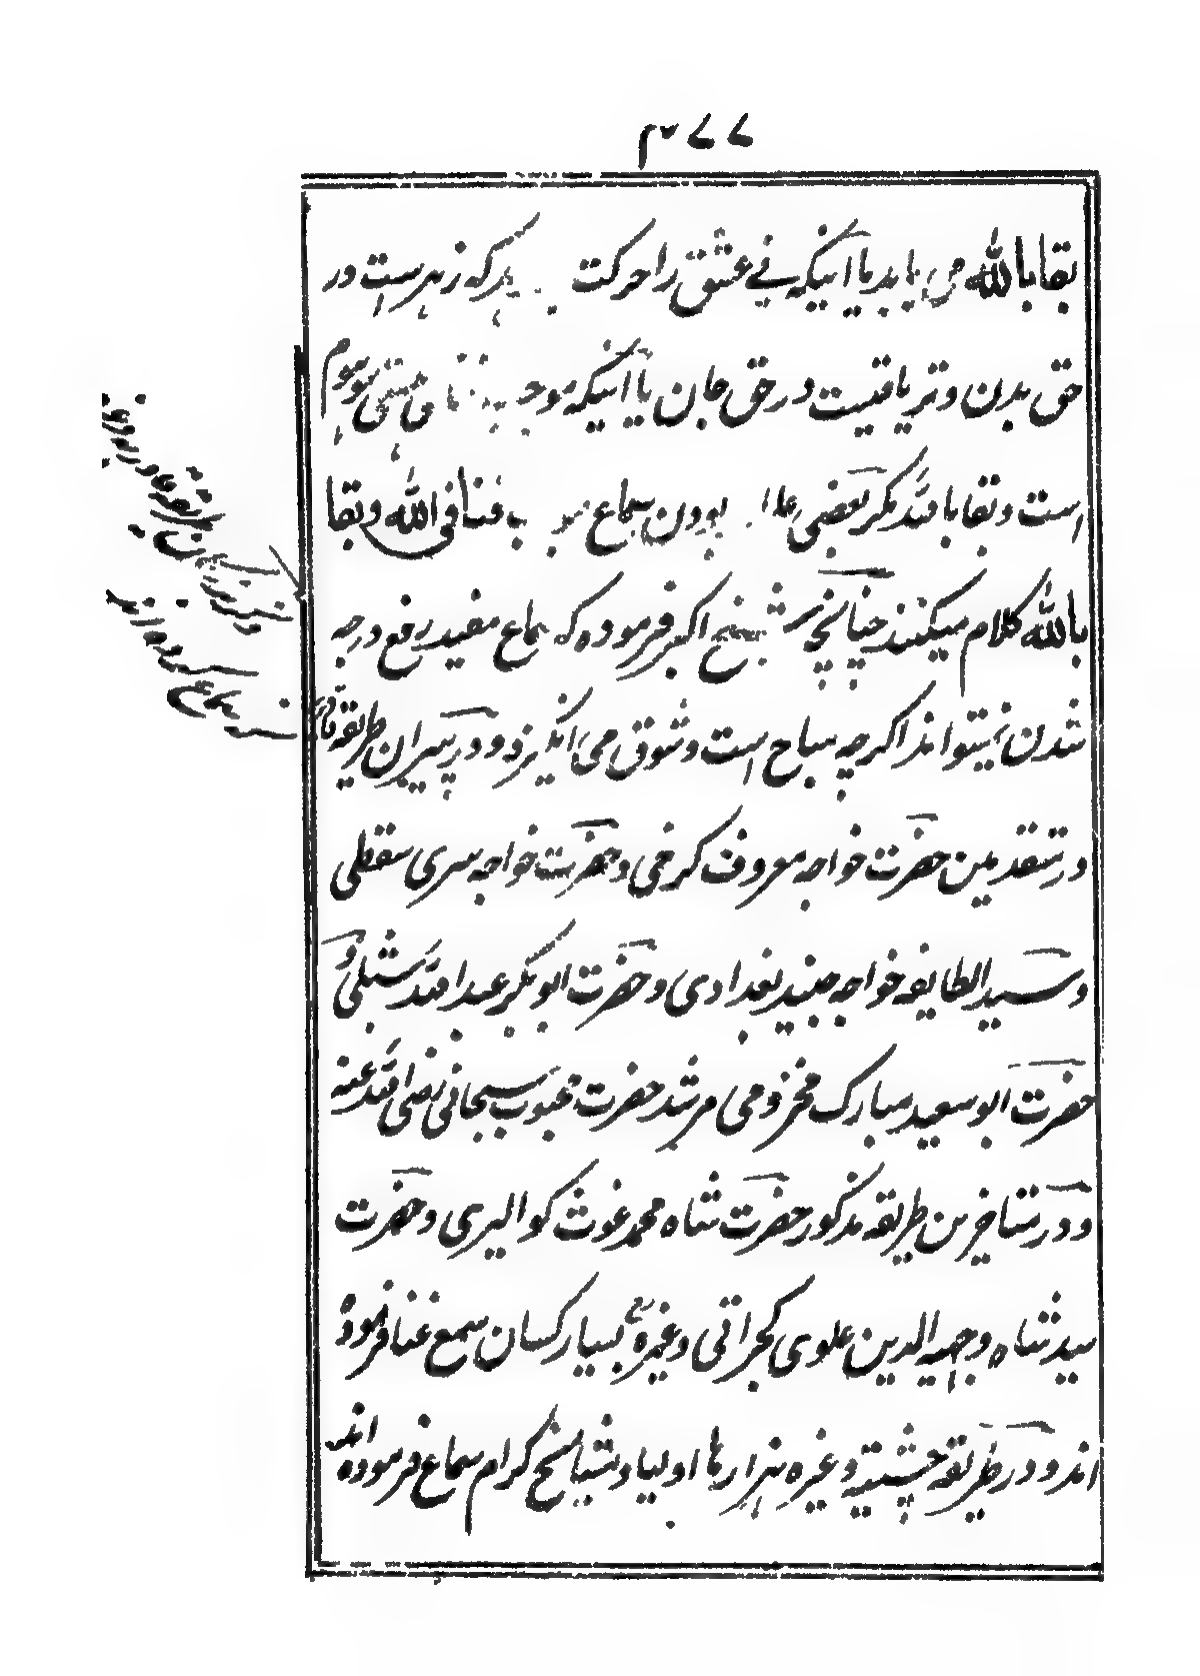 ۳۷۷
بقا بالله می یابد یا آنیکه نے عشق را حرکت هر که زهرست در
حق بدن و تریاقیت در حق جان یا آنیکه موجب فنای هستی موهوم
است و بقا بالله مگر بعضی علما بودن سماع سبب فنا فی الله و بقا
بالله کلام میکنند چنانچه شیخ اکبر فرموده که سماع مفید رفع درجه
شدن نمیتواند اگرچه مباح است و شوق می انگیزد و در پیران طریقه قادریه
در متقدمین حضرت خواجه معروف کرخی و حضرت خواجه سری سقطی
و سید الطایفه خواجه جنید بغدادی و حضرت ابو بکر عبد الله شبلی و
حضرت ابو سعید مبارک مخزومی مرشد حضرت محبوب سبحانی رضی الله عنه
و در متاخرین طریقه مذکور حضرت شاه محمد غوث گوالیری و حضرت
سید شاه وجیه الدین علوی گجراتی وغیره بسیار کسان سمع غنا فرموده
اند و در طریقه چشتیه وغیره هزارها اولیا و مشایخ کرام سماع فرموده اند